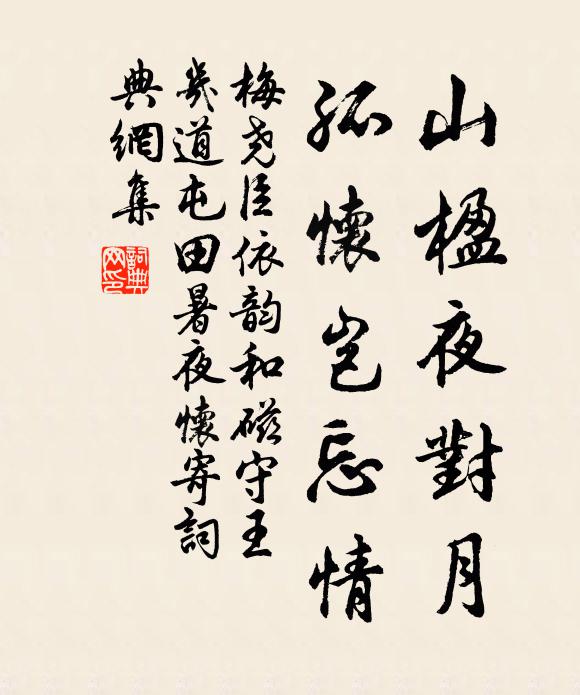 山楹夜對月
孤懷豈忘情
梅堯臣依韵和磁守王
幾道屯田暑夜懷寄詞
典網集
詞典網印